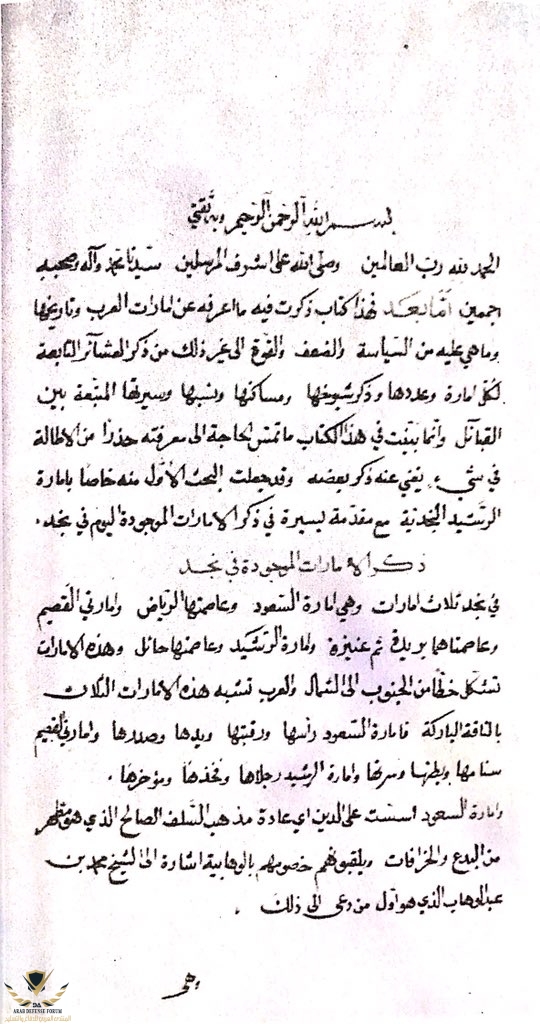 بسم الله الرحمن الرحيم وبه ثقتي
الحمد لله رب العالمين وصلى الله على اشرف المرسلين سيدنا محمد وآله وصحبه
اجمعين امّا بعد فهذا كتاب ذكرت فيه ما اعرفه عن امارات العرب وتاريخها
وما هي عليه من السياسة والضعف والقوة الى غير ذلك من ذكر العشائر التابعة
لكل امارة وعددها وذكر شيوخها ومساكنها ونسبها وسيرتها المتبعة بين
القبائل وانما بينت في هذا الكتاب ما تمس الحاجة الى معرفته حذرا من الاطالة
في شيء يغني عنه ذكر بعضه وقد جعلت البحث الاول منه خاصا بامارة
الرشيد النجدية مع مقدمة يسيرة في ذكر الامارات الموجودة اليوم في نجد.
ذكر الامارات الموجودة في نجد
في نجد ثلاث امارات وهي امارة السعود وعاصمتها الرياض وامارتي القصيم
وعاصمتاهما بريدة ثم عنيزة وامارة الرشيد وعاصمتها حائل وهذه الامارات
تشكل خطا من الجنوب الى الشمال والعرب تشبه هذه الامارات الثلاث
بالناقة الباركة فامارة السعود رأسها ورقبتها ويدها وصدرها وامارتي القصيم
سنامها وبطنها وسرتها وامارة الرشيد رجلاها وفخذها ومؤخرها.
وامارة السعود اسست على الدين اي عادة مذهب السلف الصالح الذي هو مطهر
من البدع والخرافات ويلقبونهم خصومهم بالوهابية اشارة الى الشيخ محمد بن
عبد الوهاب الذي هو اول من دعى الى ذلك.
وهي
DA
ARAB DEFENSE FORUM
المنتدى العربي للدفاع والتسليح